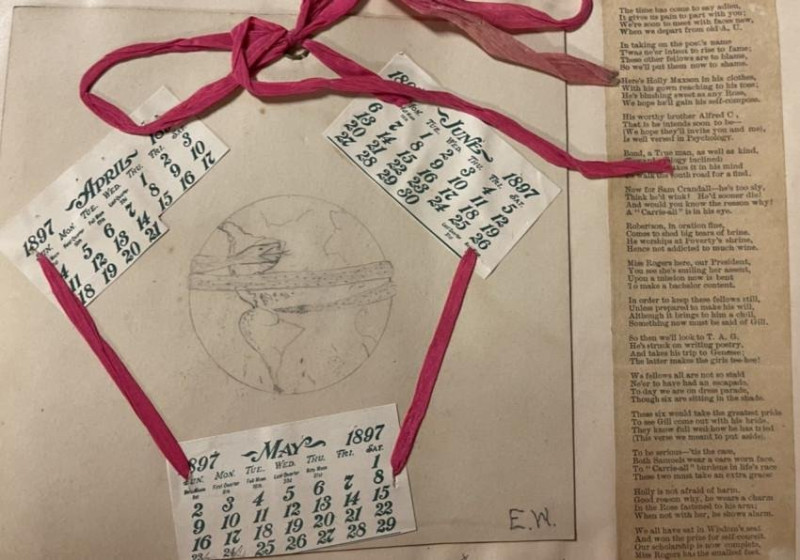 APRIL
1897
THU. FRI. SAT.
1 2 3
8 9 10
4 5 6 7
15 16 17
11 12 13 14
18 19 20 21
JUNE
1897
MON. TUE. WED. THU. FRI. SAT.
1 2 3 4 5
6 7 8 9 10 11 12
13 14 15 16 17 18 19
20 21 22 23 24 25 26
27 28 29 30
MAY
897 1897
SUN. MON. TUE. WED. THU. FRI. SAT.
1
2 3 4 5 6 7 8
9 10 11 12 13 14 15
16 17 18 19 20 21 22
23 24 25 26 27 28 29
E.W.
The time has come to say adieu,
It gives us pain to part with you;
We're soon to meet with faces new,
When we depart from old A. U.
In taking on the poet's name
T'was ne'er intent to rise to fame;
These other fellows are to blame,
So we'll put them now to shame.
Here's Holly Maxson in his clothes,
With his gown reaching to his toes;
He's blushing sweet as any Rose,
We hope he'll gain his self-compose.
His worthy brother Alfred C,
That is he intends soon to be—
(We hope they'll invite you and me),
Is well versed in Psychology.
Rood, a True man, as well as kind,
inclined)
it in his mind
To walk the south road for a find.
Now for Sam Crandall—he's too sly,
Think he'd wink! He'd sooner die!
And would you know the reason why?
A "Carrie-all" is in his eye.
Roberson, in oration fine,
Comes to shed big tears of brine.
He worships at Poverty's shrine,
Hence not addicted to much wine.
Miss Rogers here, our President,
You see she's smiling her assent,
Upon a mission now is bent
To make a bachelor content.
In order to keep these fellows still,
Unless prepared to make his will,
Although it brings to him a chill,
Something now must be said of Gill.
So then we'll look to T. A. G.
He's struck on writing poetry,
And takes his trip to Genesee;
The latter makes the girls tee-hee!
We fellows all are not so staid
Ne'er to have had an escapade.
To-day we are on dress parade,
Though six are sitting in the shade.
These six would take the greatest pride
To see Gill come out with his bride.
They know full well how he has tried
(This verse we meant to put aside).
To be serious—'tis the case,
Both Samuels wear a care worn face.
To "Carrie-all" burdens in life's race
These two must take an extra grace
Holly is not afraid of harm.
Good reason why, he wears a charm
In the Rose fastened to his arm;
When not with her, he shows alarm.
We all have sat in Wisdom's seat
And won the prize for self-conceit.
Our scholarship is now complete,
Miss Rogers has the smallest feet.